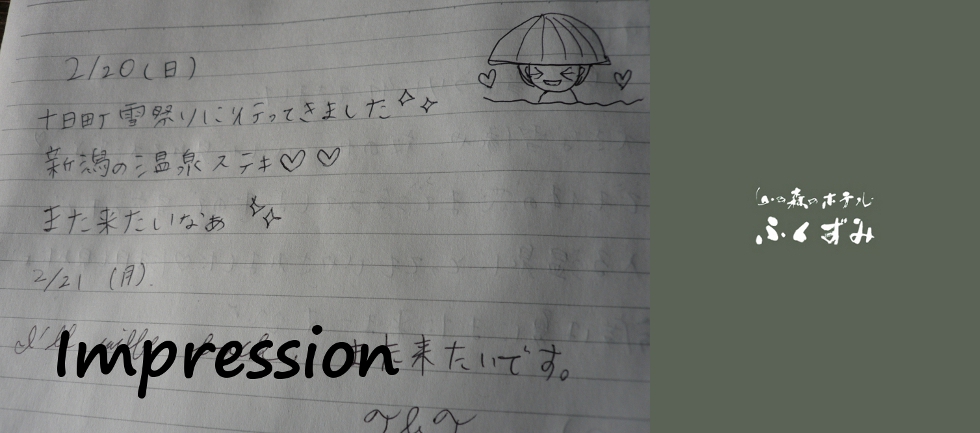 2/20(日)
十日町雪祭りに行ってきました
新潟の温泉ステキ♡♡
また来たいなぁ
2/21 (月).
I'll
Impression
また来たいです。
森のホテル
ふくずみ